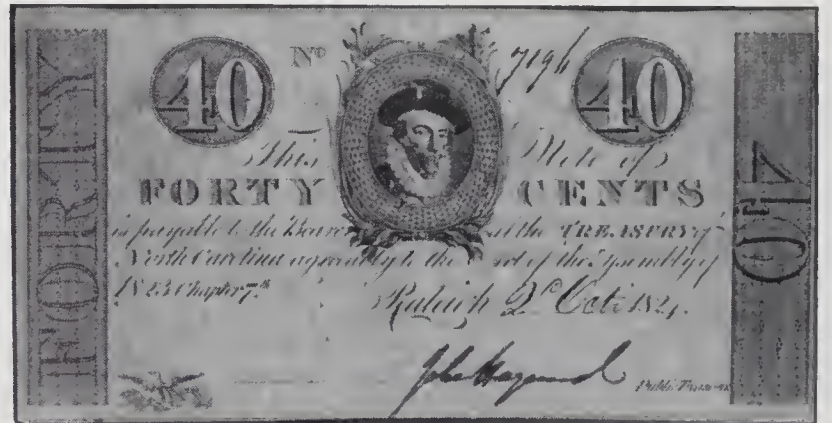 FORTY
40 No 7196 40
This Note of
FORTY CENTS
is payable to the Bearer at the TREASURY of
North Carolina agreeably to the Act of the Assembly of
1823 Chapter 7th Raleigh 2d Oct. 1824.
John Haywood Public Treas
40